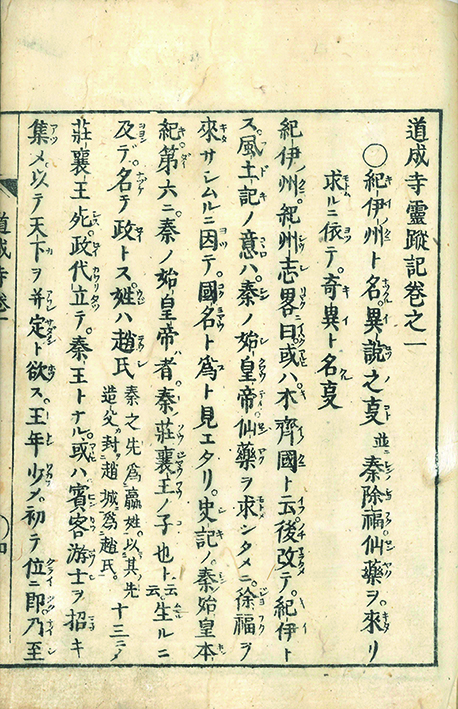 道成寺靈蹤記卷之一
○紀伊州ト名。異說之叓並ニ秦除福仙藥ヲ。來リ
求ルニ依テ。奇異ト名叓
紀伊州。紀州志畧曰或ハ木齊國ト云後改テ。紀伊ト
ス。風土記ノ意ハ。秦ノ始皇帝仙藥ヲ求シタメニ。徐福ヲ
來サシムルニ因テ。國名ト爲ト見エタリ。史記ノ。秦始皇本
紀第六ニ。秦ノ始皇帝ハ者。秦ノ莊襄王ノ子也ト云云生ルニ
及デ。名テ政トス。姓ハ趙氏秦之先爲嬴姓。以其先造父封趙城爲趙氏。十三ニメ
莊襄王死。政代立テ。秦王トナル。或ハ賓客游士ヲ招キ
集メ。以テ天下ヲ并定ト欲ス。王年少メ。初テ位ニ即。乃至
道成寺卷一